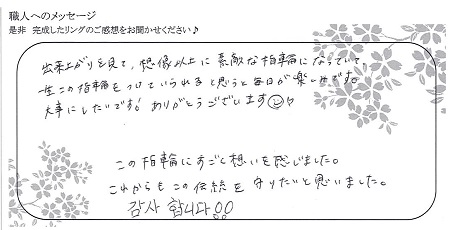 職人へのメッセージ
是非 完成したリングのご感想をお聞かせください♪
出来上がりを見て、想像以上に素敵な指輪になっていて、
一生この指輪をつけていられると思うと毎日が楽しみです。
大事にしたいです! ありがとうございます
この指輪にすごく想いを感じました。
これからもこの伝統を守りたいと思いました。
감사 합니다!!